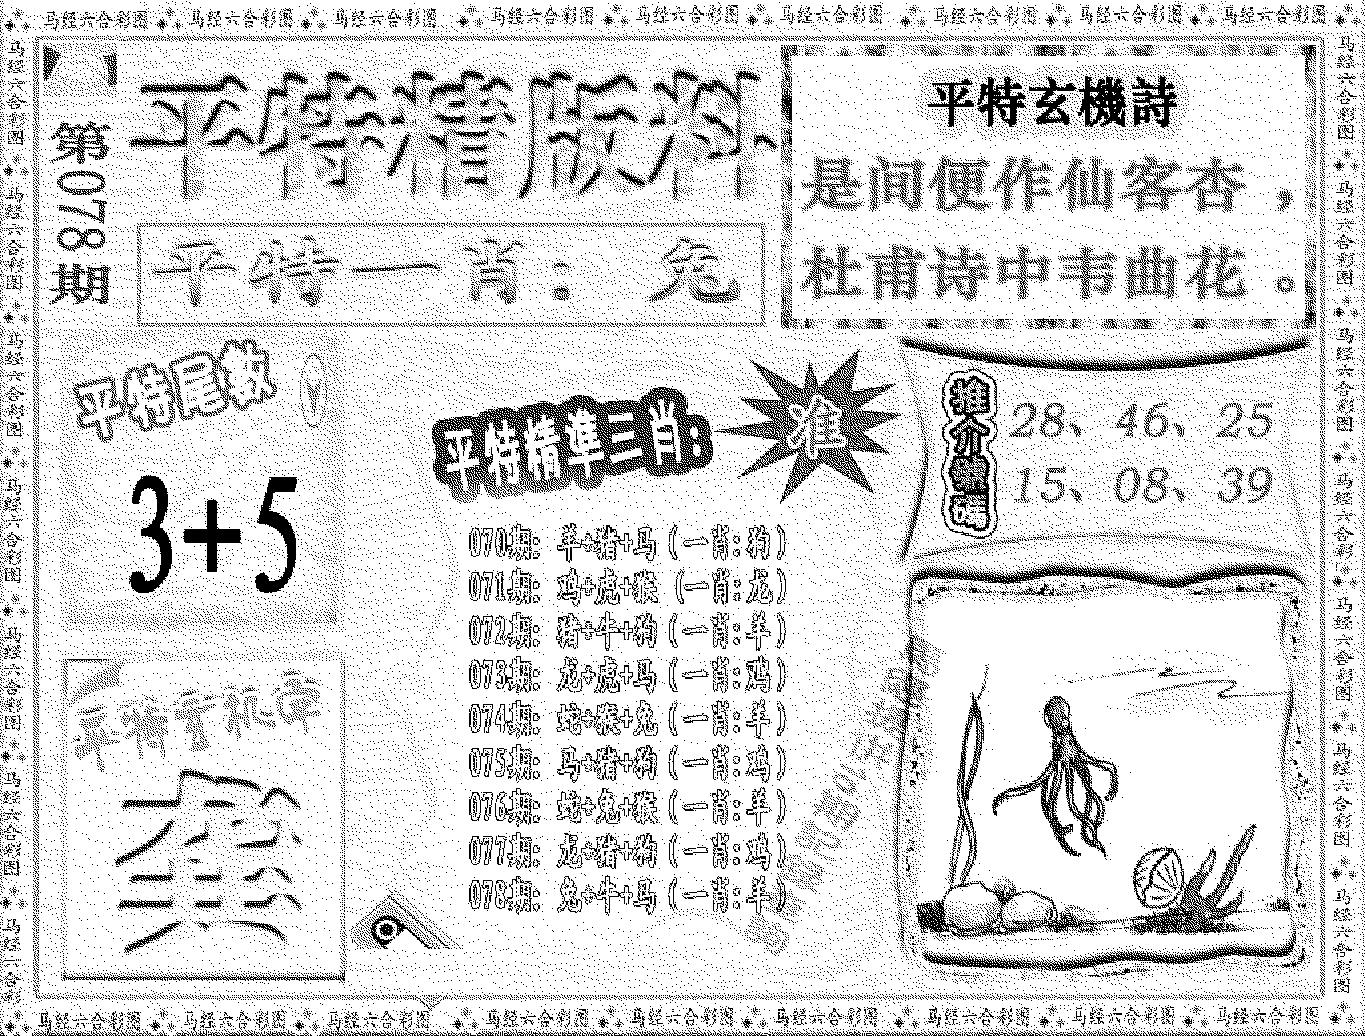 马经六合彩图 马经六合彩图 马经六合彩图 马经六合彩图 马经六合彩图 马经六合彩图 马经六合彩图 马经六合彩图 马经六合彩图
第078期
平特精版料
平特一肖：兔
平特玄機詩
是间便作仙客杏，
杜甫诗中韦曲花。
平特尾数
3+5
平特精準三肖：
准
070期：羊+猪+马（一肖：狗）
071期：鸡+虎+猴（一肖：龙）
072期：猪+牛+狗（一肖：羊）
073期：龙+虎+马（一肖：鸡）
074期：蛇+猴+兔（一肖：羊）
075期：马+猪+狗（一肖：鸡）
076期：蛇+兔+猴（一肖：羊）
077期：龙+猪+狗（一肖：鸡）
078期：兔+牛+马（一肖：羊）
推介號碼
28、46、25
15、08、39
平特玄机字
马经六合彩图 马经六合彩图 马经六合彩图 马经六合彩图 马经六合彩图 马经六合彩图 马经六合彩图 马经六合彩图 马经六合彩图